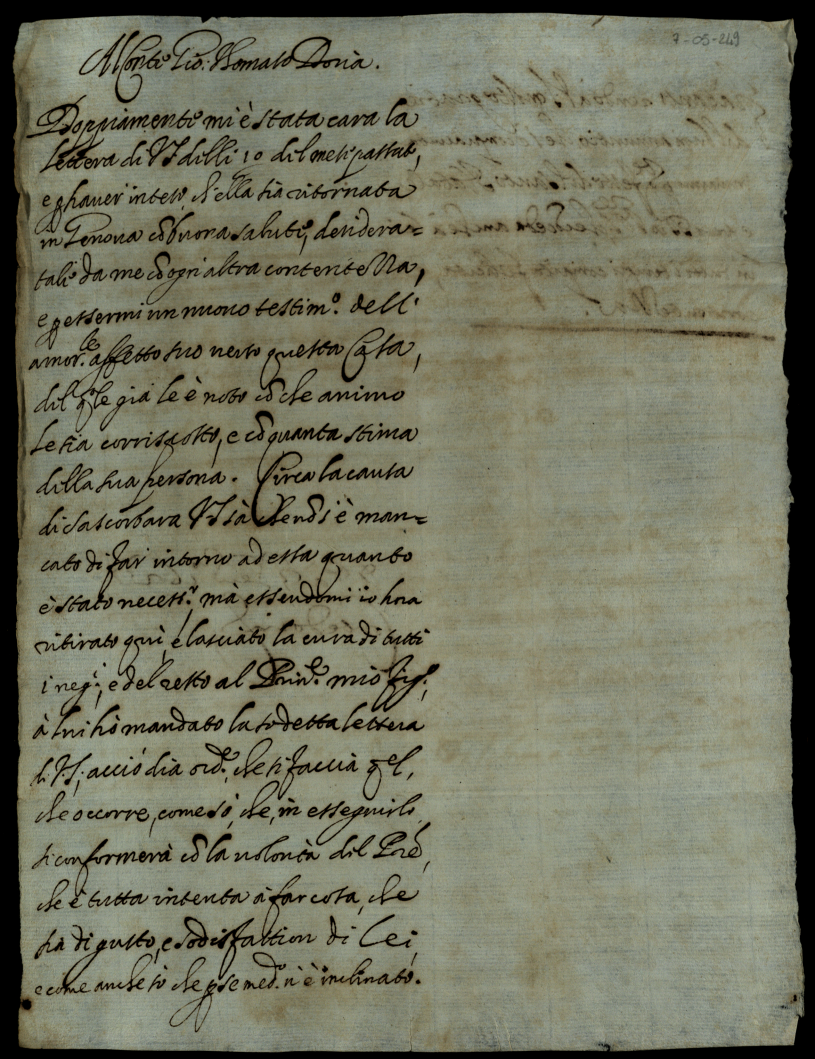 7-05-249
Al Conte Gio: Thomaso Doria.
Doppiamente mi è stata cara la
lettera di VS dilli 10 dil mese passato,
e p haver inteso ch'ella sia ritornata
in Genova cō buona salute, desidera=
tale da me cō ogni altra contentezza,
e p essermi un nuovo testim.o dell'
amor.le affetto suo verso questa Casa,
dil q.le già le è noto cō che animo
le sia corrisposto, e cō quanta stima
dilla sua persona. Circa la causa
di VS sà che nō s'è man=
cato di far intorno ad essa quanto
è stato necess.o, mà essendomi io hora
ritirato quì, e lasciato la cura di tutti
i neg.i, e del resto al Prin.e mio fig.o,
à lui hò mandato la sodetta lettera
di VS, acciò dia ord.e, che si faccia q.el,
che occorre, come sò, che, in esseguirlo
si conformerà cō la volontà dil Pre,
che è tutta intenta à far cosa, che
sia di gusto, e sodisfattion di Lei,
e come anche sò che p se med.o n'è inclinato.